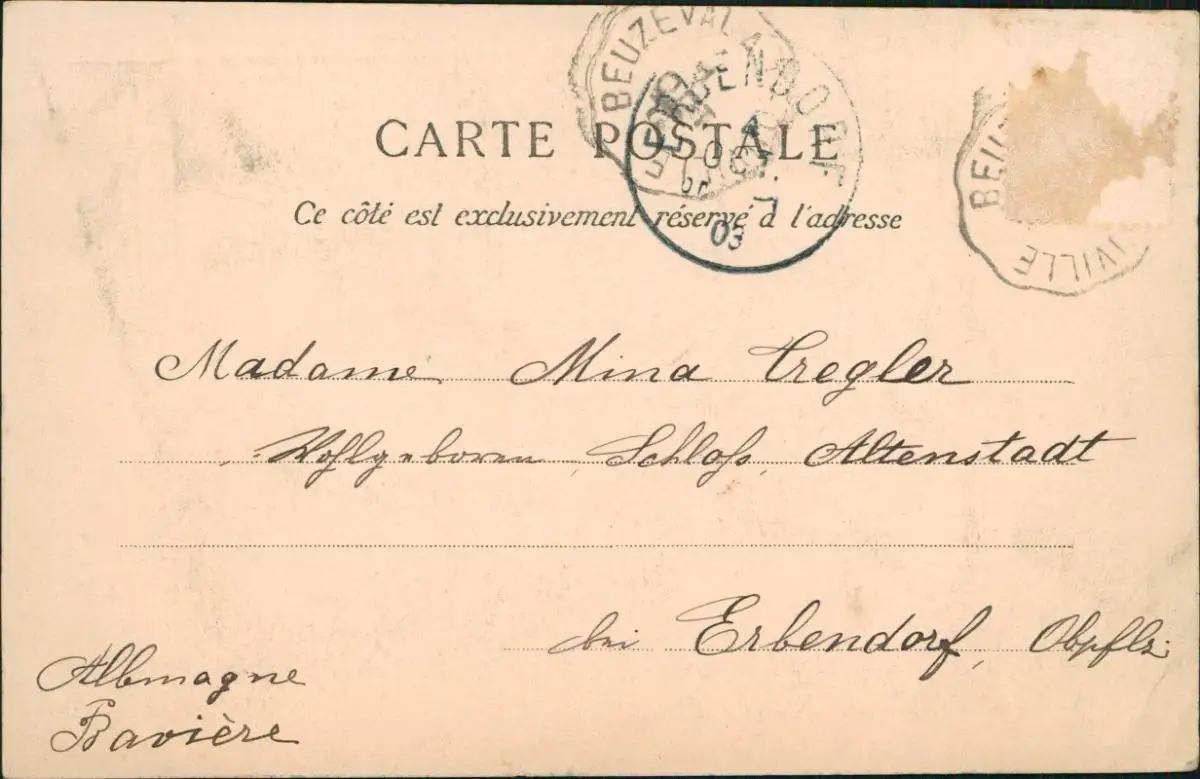 BEUZEVAL A
ERBENDORF
OCT
03
BEU
VILLE
CARTE POSTALE
Ce côté est exclusivement réservé à l'adresse
Madame Mina Tregler
Wohlgeboren, Schloß, Altenstadt
bei Erbendorf, Obpflz:
Allemagne
Bavière